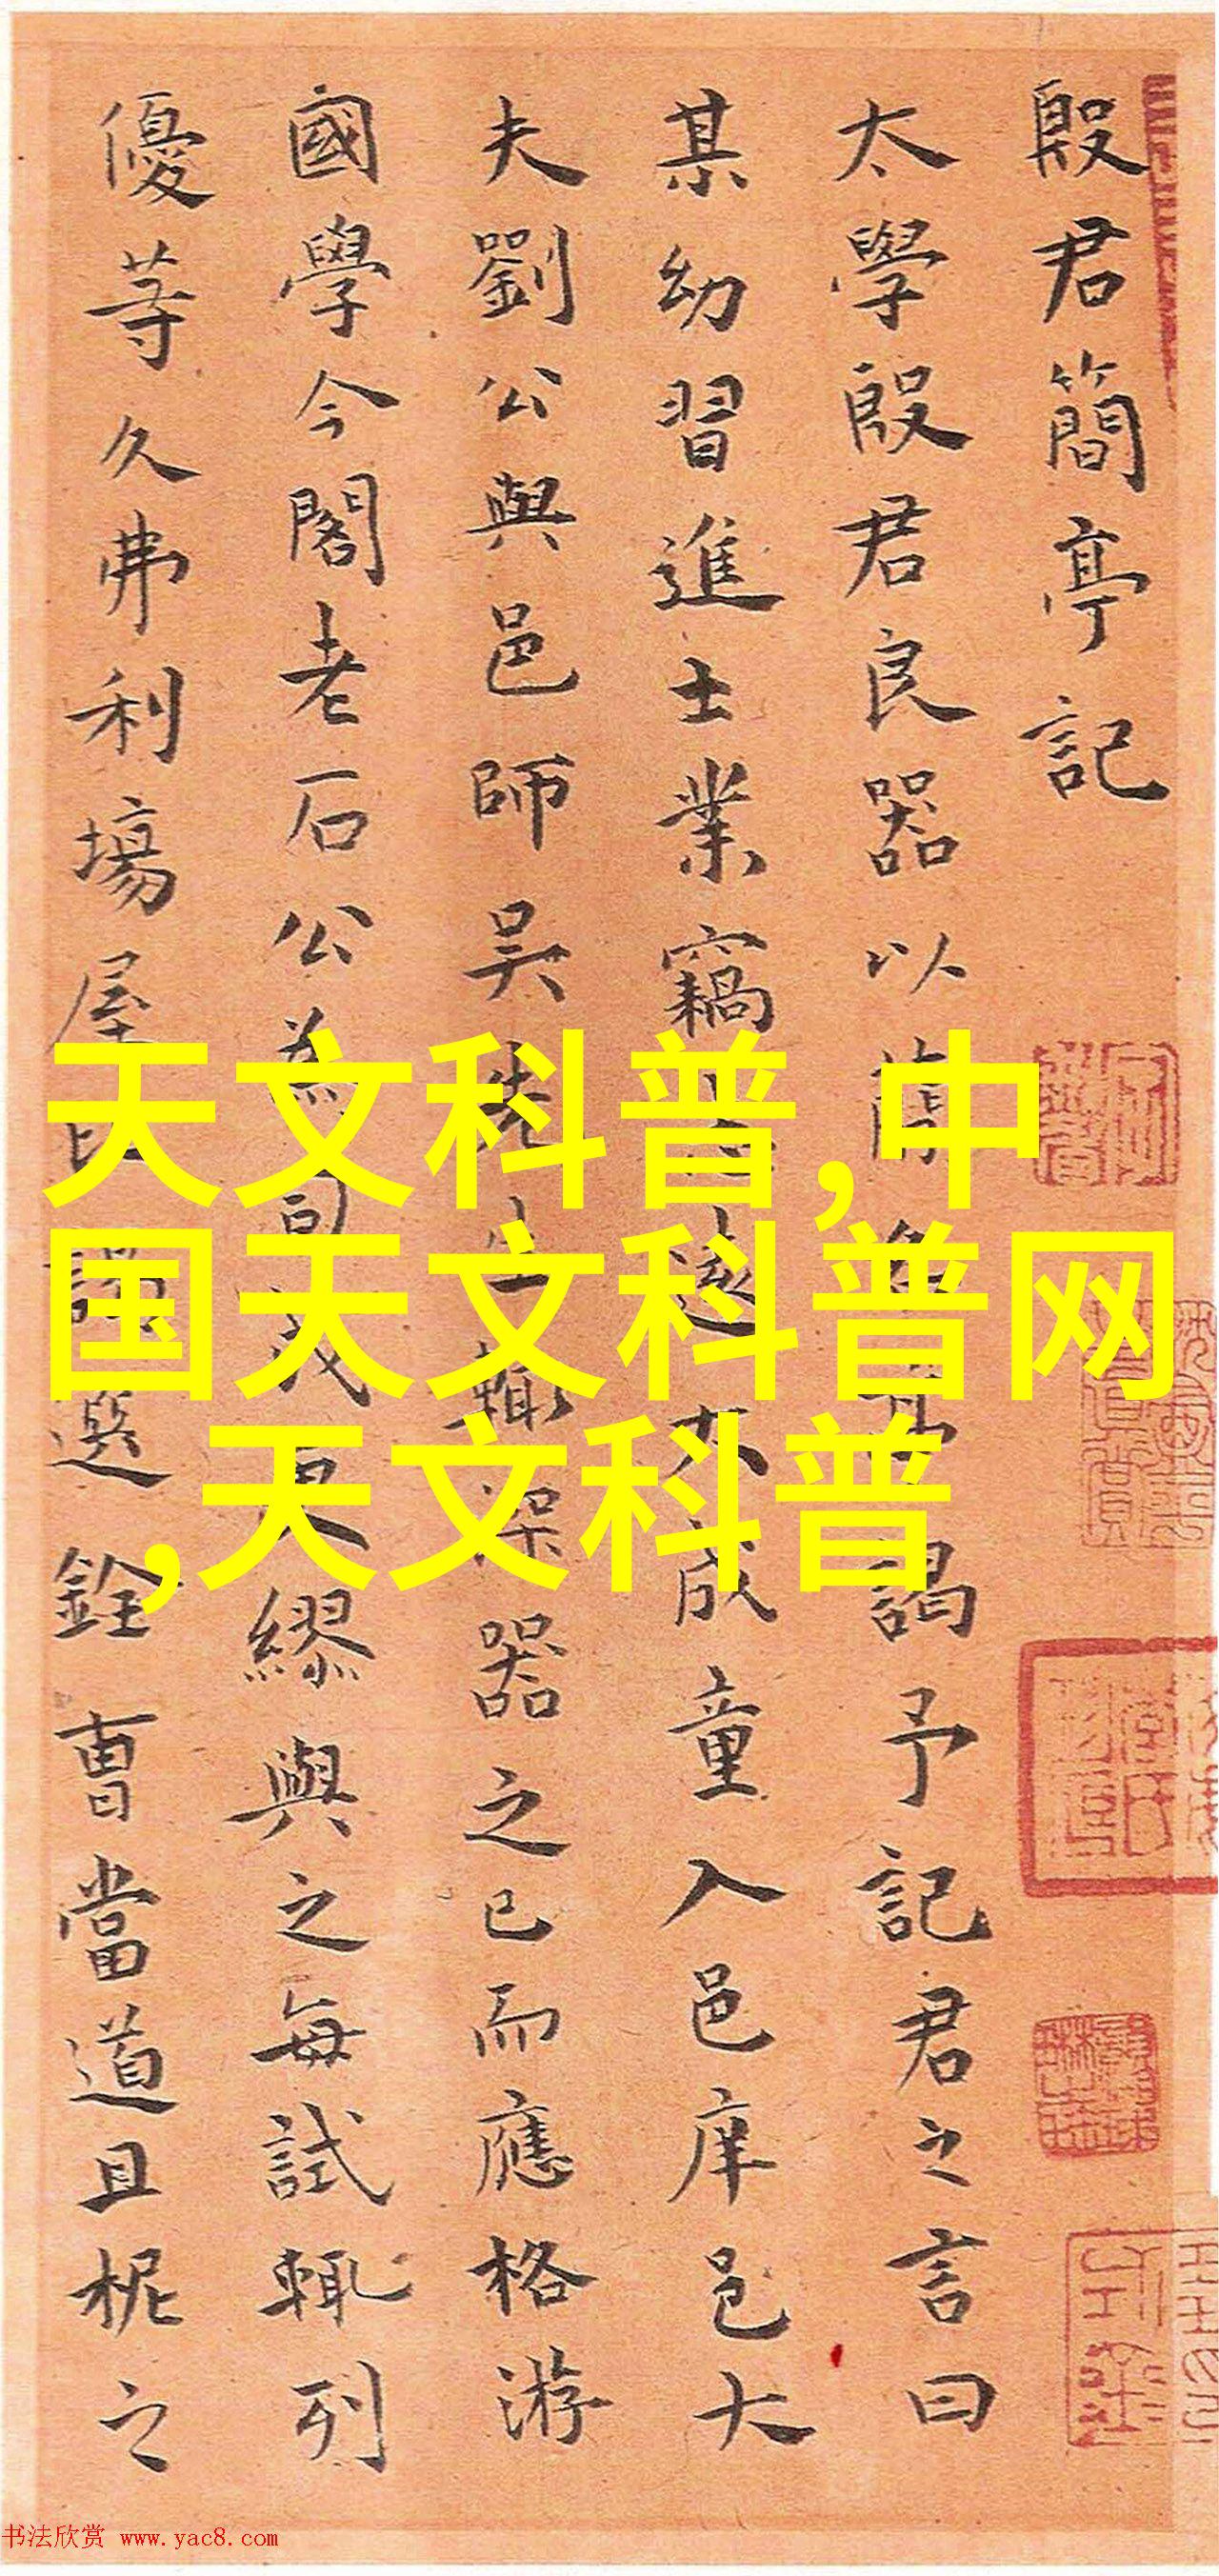 殷君簡亭記
太學殷君良器以簡謁予記君之言曰
某幼習進士業竊遂大成童入邑庠邑大
夫劉公與邑師吳先生輒深器之已而應格游
國學今閣老石公為司成更繆與之每試輒列
優等久弗利場屋選銓曹當道且柅之
天文科普,中
国天文科普网
,天文科普
书法欣赏 www.yac8.com